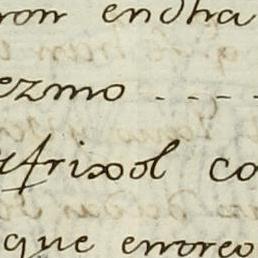 ron endha
ezmo ....
afrixol co
que erroreo